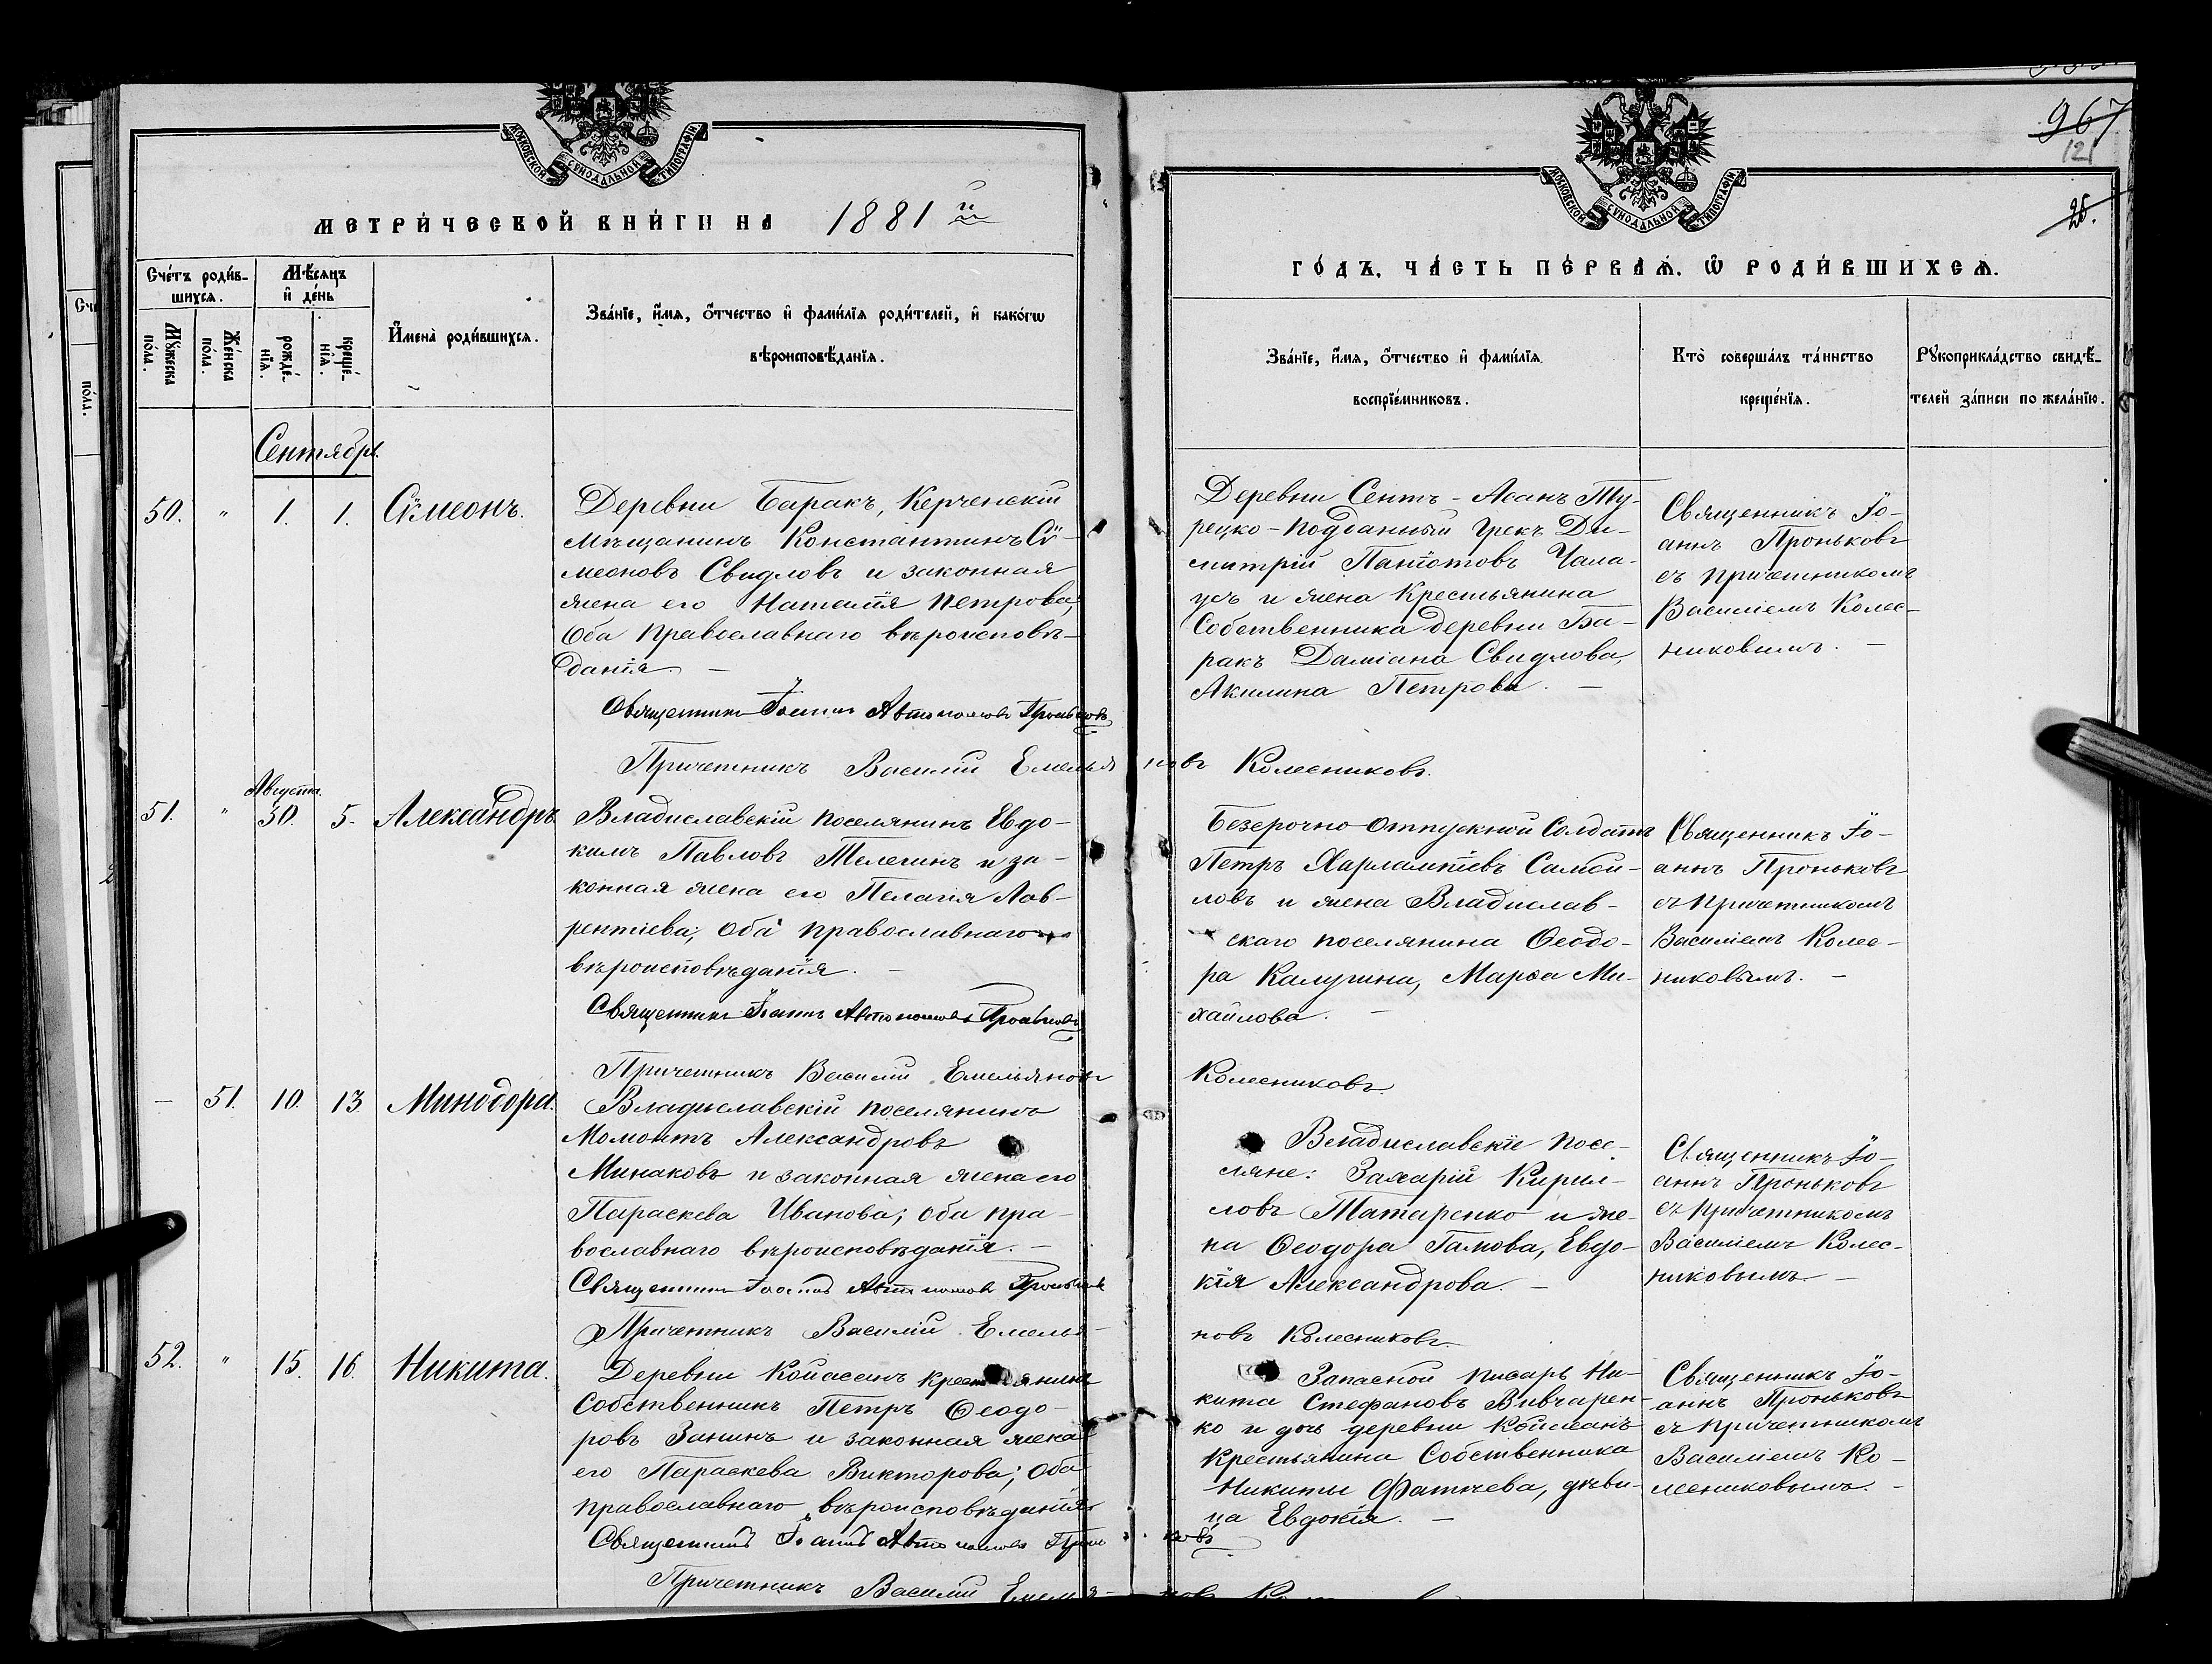 МОСКОВСКОЙ СѴНОДАЛЬНОЙ ТИПОГРАФІИ
МЕТРИ́ЧЕСКОЙ КНИ́ГИ НА 1881 й
Сче́тъ роди́в-
шихсѧ.
Мѣ́сѧцъ
и҆ де́нь
Мꙋ́жеска
по́ла.
Же́нска
по́ла.
рожде́-
нїѧ.
креще́-
нїѧ.
И҆мена̀ роди́вшихсѧ.
Зва́нїе, и҆́мѧ, ѻ҆́тчество и҆ фами́лїѧ роди́телей, и҆ како́гѡ
вѣроисповѣ́данїѧ.
Сентябрь.
50. " 1. 1. Сѵмеонъ.
Деревни Баракъ, Керченскій
мѣщанинъ Константинъ Сѵ-
меоновъ Свидловъ и законная
жена его Наталія Петрова,
Оба Православнаго вѣроисповѣ-
данія. —
Священникъ Іоаннъ Автономовъ Проньковъ
Причетникъ Василій Емельяновъ Колесниковъ.
Августа.
51. " 30. 5. Александръ
Владиславскій поселянинъ Евдо-
кимъ Павловъ Телегинъ и за-
конная жена его Пелагія Лав-
рентіева; оба православнаго
вѣроисповѣданія. —
Священникъ Іоаннъ Автономовъ Проньковъ
Причетникъ Василій Емельяновъ
— 51. 10. 13. Минодора.
Владиславскій поселянинъ
Момонтъ Александровъ
Минаковъ и законная жена его
Параскева Иванова; оба пра-
вославнаго вѣроисповѣданія. —
Священникъ Іоаннъ Автономовъ Проньковъ
Причетникъ Василій Емелья-
52. " 15. 16. Никита.
Деревни Койасанъ крестьянинъ
Собственникъ Петръ Ѳеодо-
ровъ Занинъ и законная жена
его Параскева Викторова; оба
православнаго вѣроисповѣданія
Священникъ Іоаннъ Автономовъ Проньковъ
Причетникъ Василій Емелья-
967
121
26.
МОСКОВСКОЙ СѴНОДАЛЬНОЙ ТИПОГРАФІИ
ГО́ДЪ, ЧА́СТЬ ПЕ́РВАѦ, Ѡ҆ РОДИ́ВШИХСѦ.
Зва́нїе, и҆́мѧ, ѻ҆́тчество и҆ фами́лїѧ
воспрїе́мниковъ.
Кто̀ соверша́лъ та́инство
креще́нїѧ.
Рꙋкоприкла́дство свидѣ́-
телей за́писи по жела́нїю.
Деревни Сентъ-Асанъ Ту-
рецко-подданный Грекъ Ди-
митрій Панаіотовъ
и жена Крестьянина
Собственника деревни Ба-
ракъ Даміана Свидлова,
Акилина Петрова. —
Священникъ Іо-
аннъ Проньковъ
съ причетникомъ
Василіемъ Колес-
никовымъ. —
Безсрочно-отпускной Солдатъ
Петръ Харлампіевъ Самой-
ловъ и жена Владислав-
скаго поселянина Ѳеодо-
ра Калугина, Марѳа Ми-
хайлова. —
Священникъ Іо-
аннъ Проньковъ
съ причетникомъ
Василіемъ Колес-
никовымъ. —
Колесниковъ.
Владиславскіе посе-
ляне: Захарій Кирил-
ловъ Татаренко и же-
на Ѳеодора Гамова, Евдо-
кія Александрова. —
Священникъ Іо-
аннъ Проньковъ
съ причетникомъ
Василіемъ Колес-
никовымъ —
новъ Колесниковъ.
Запасной писарь Ни-
кита Стефановъ Вивчарен-
ко и дочь деревни Койасанъ
Крестьянина Собственника
Никиты Фатнева, дѣви-
ца Евдокія. —
Священникъ Іо-
аннъ Проньковъ
съ причетникомъ
Василіемъ Ко-
лесниковымъ. —